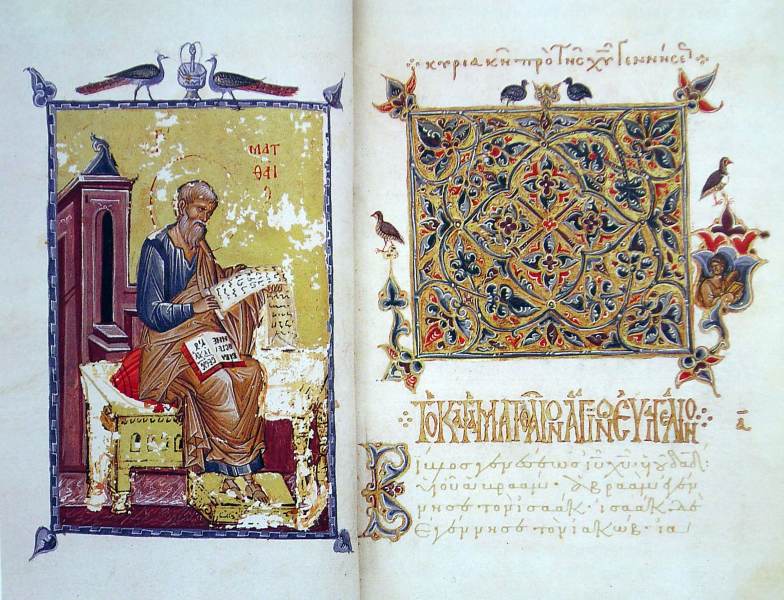 ΜΑΤ
ΘΑΙ
Ο
κυριακὴ πρὸ τῆς χυ γεννήσε
ΤΟ ΚΑΤΑ ΜΑΤΘΑΙΟΝ ΑΓΙΟΝ ΕΥΑΓΓΕΛΙΟΝ
α
Βίβλος γενέσεως ιυ χυ υἱοῦ δαδ·
υἱοῦ ἀβραάμ· ἀβραὰμ ἐγέν
νησε τὸν ἰσαάκ· ἰσαὰκ δὲ
ἐγέννησε τὸν ἰακώβ· ἰα